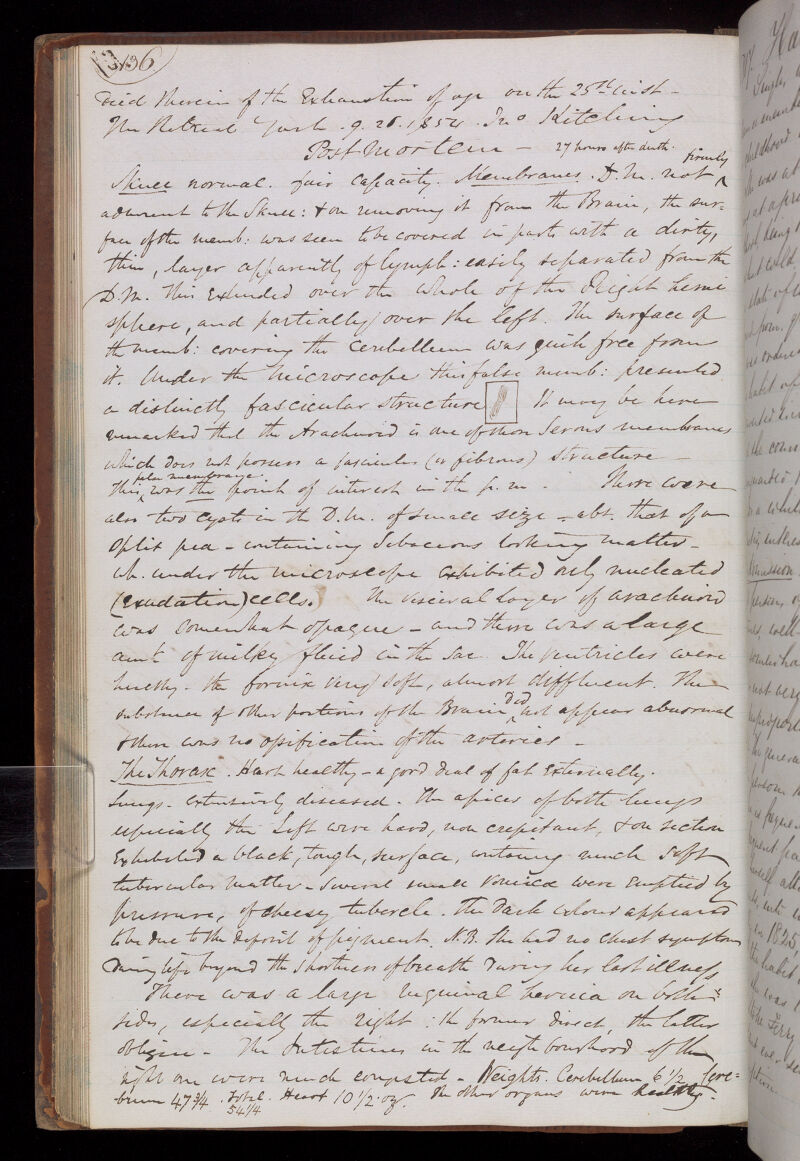 136
died therein of the Exhaustion of age on the 25th inst -
The Retreat York . 9. 26. 1854 . Jno Kitching
Post Mortem - 27 hours after death.
Skull normal. fair capacity. Membranes. D.M. not firmly
adherent to the Skull: & on removing it from the Brain, the sur=
face of the memb: was seen to be covered in parts with a dirty,
thin, layer apparently of lymph: easily separated from the
D.M. This extended over the whole of the Right hemi
sphere, and partially over the left. The surface of
the memb: covering the cerebellum was quite free from
it. Under the microscope this false memb: presented
a distinctly fascicular structure It may be here
remarked that the Arachnoid is one of those Serous membranes
which does not possess a fascicular (or fibrous) structure -
This false membrane was the point of interest in the p.m - There were
also two cysts in the D.M. of small size - abt. that of a
split pea - containing Sebaceous looking matter -
wh. under the microscope exhibited only nucleated
(exudation) cells. The visceral layer of arachnoid
was somewhat opaque - and there was a large
amt of milky fluid in the sac. The ventricles were
healthy - the fornix very soft, almost diffluent. The
substance of other portions of the Brain did not appear abnormal
& there was no ossification of the arteries -
The Thorax. Heart healthy - a good deal of fat externally.
Lungs - extensively diseased. The apices of both lungs
especially the Left were hard, non crepitant, & on section
Exhibited a black, tough, surface, containing much soft
tubercular matter - Several small vomicæ were emptied by
pressure, of cheesy tubercle. The dark colour appeared
to be due to the deposit of pigment. N.B. She had no chest symptom
during life beyond the shortness of breath during her last illness
There was a large inguinal hernia on both
sides, especially the right : the former direct, the latter
oblique - The Intestines in the neighbourhood of the
right one were much congested - Weights. Cerebellum 6 1/2 Cere=
brum 47 3/4 . Total 54 1/4 Heart 10 1/2 oz. The other organs were healthy.